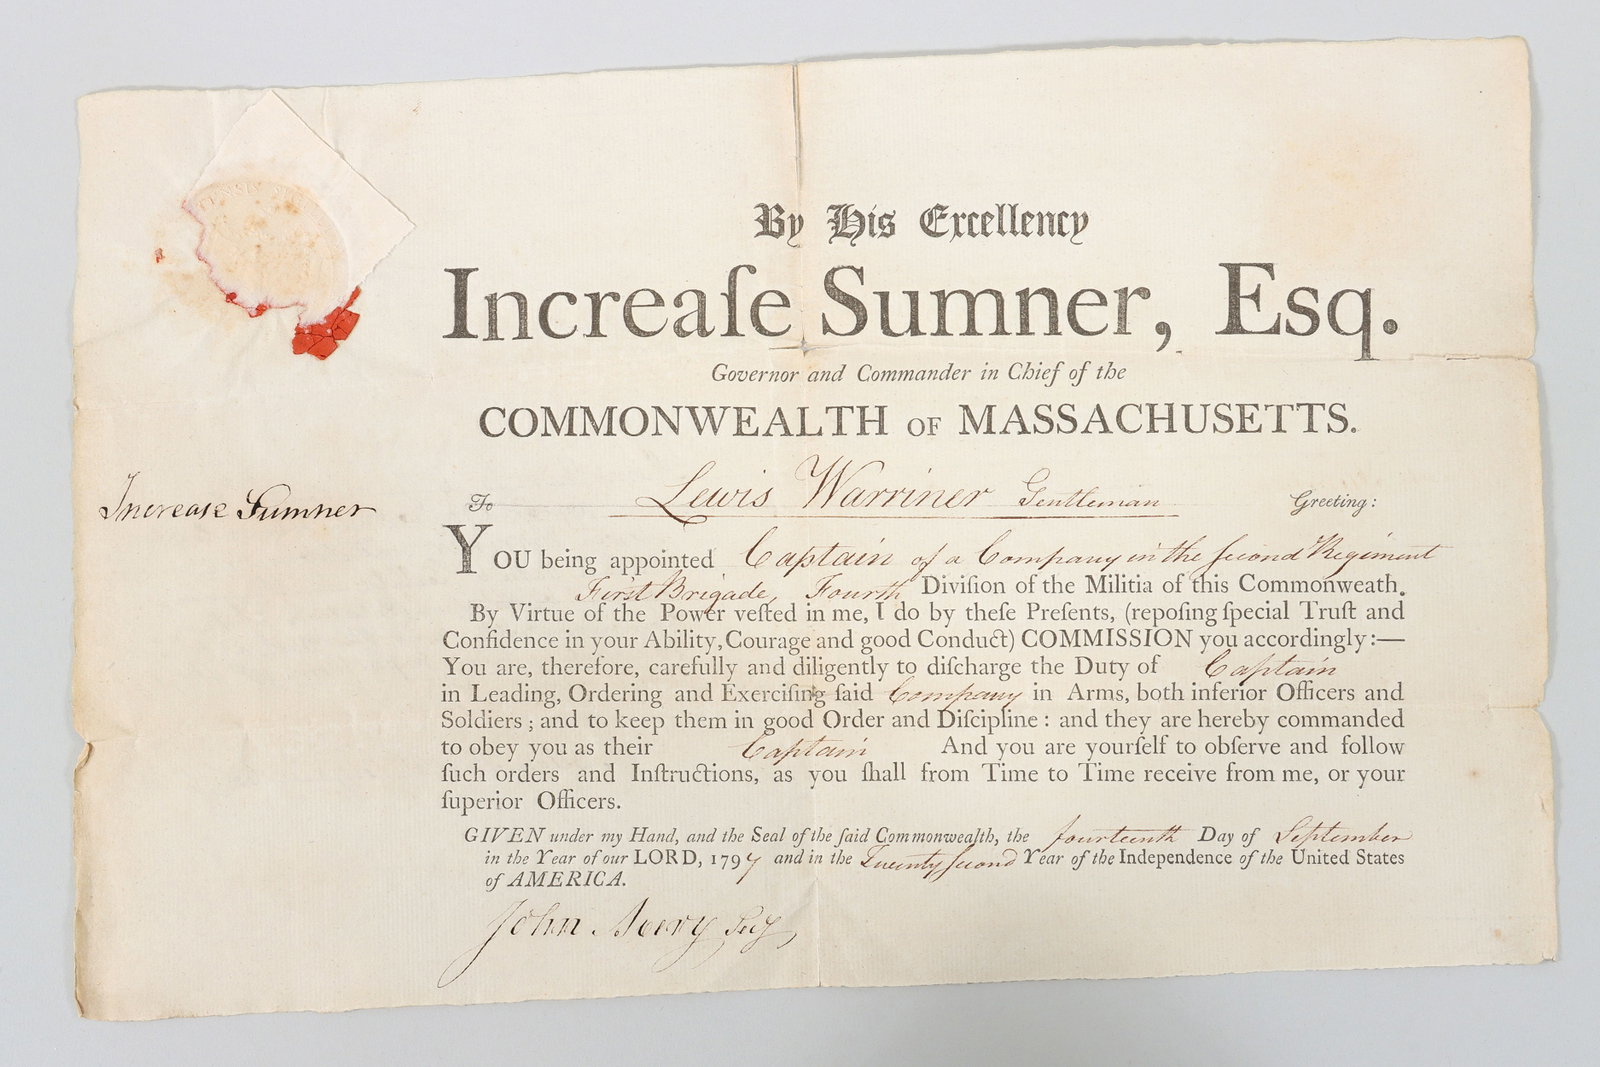 By His Excellency
Increaſe Sumner, Esq.
Governor and Commander in Chief of the
COMMONWEALTH OF MASSACHUSETTS.
Increase Sumner
To Lewis Warriner Gentleman Greeting:
YOU being appointed Captain of a Company in the second Regiment
First Brigade, Fourth Diviſion of the Militia of this Commonweath.
By Virtue of the Power veſted in me, I do by theſe Preſents, (repoſing ſpecial Truſt and
Confidence in your Ability, Courage and good Conduct) COMMISSION you accordingly:—
You are, therefore, carefully and diligently to diſcharge the Duty of Captain
in Leading, Ordering and Exerciſing ſaid Company in Arms, both inferior Officers and
Soldiers; and to keep them in good Order and Diſcipline: and they are hereby commanded
to obey you as their Captain And you are yourſelf to obſerve and follow
ſuch orders and Inſtructions, as you ſhall from Time to Time receive from me, or your
ſuperior Officers.
GIVEN under my Hand, and the Seal of the ſaid Commonwealth, the fourteenth Day of September
in the Year of our LORD, 1797 and in the Twenty second Year of the Independence of the United States
of AMERICA.
John Avery Secy